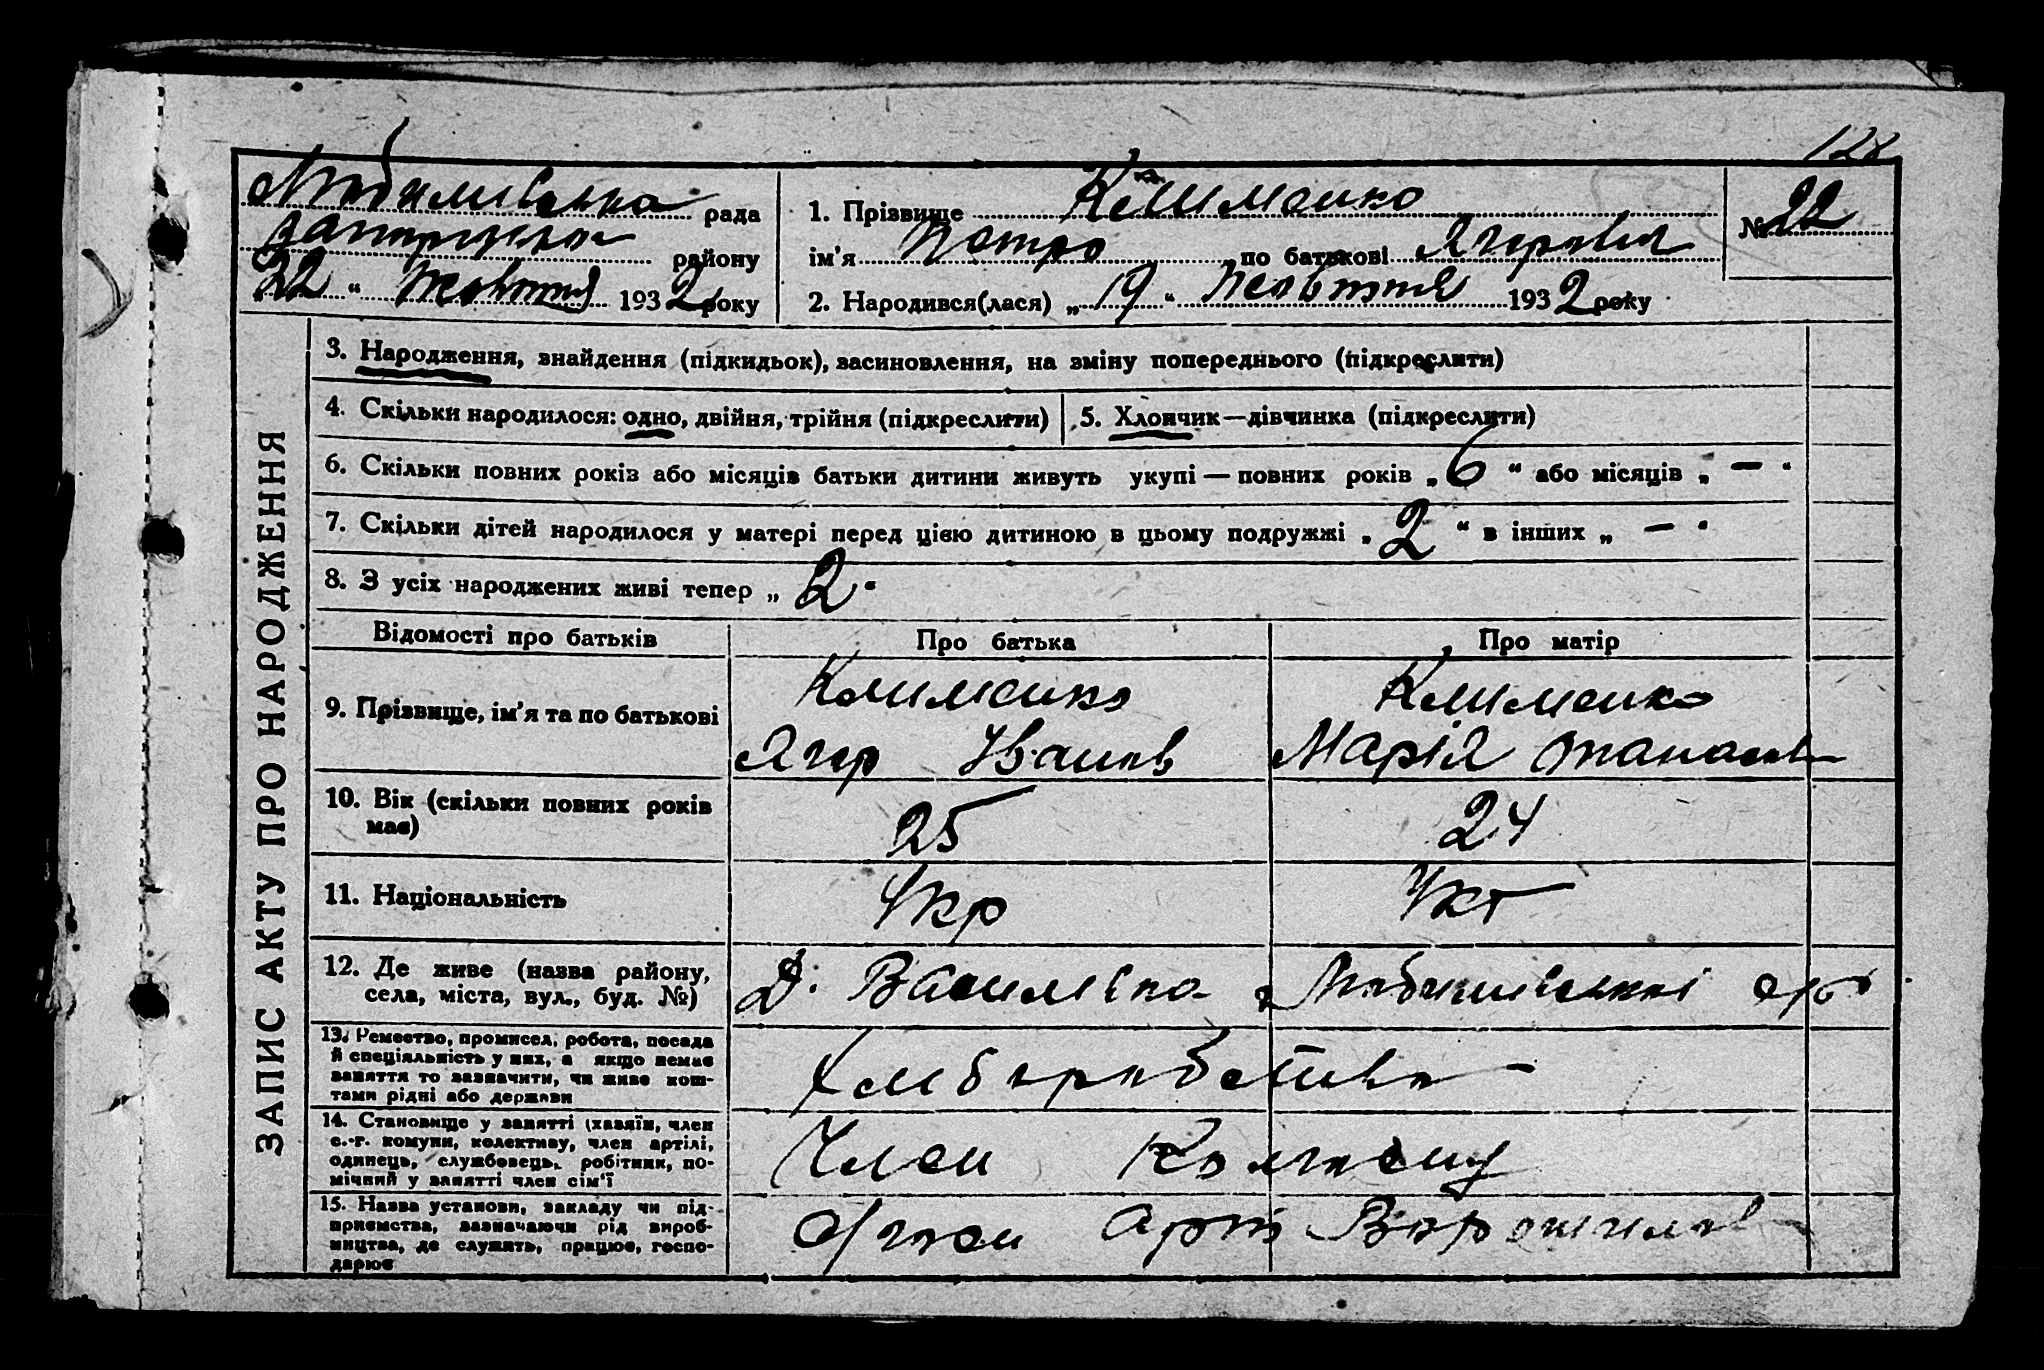 128
рада
району
22 " Жовтня 1932 року
1. Прізвище Клименко
ім'я Петро по батькові Ягорович
2. Народився(лася) „ 19 " Жовтня 1932 року
№ 22
ЗАПИС АКТУ ПРО НАРОДЖЕННЯ
3. Народження, знайдення (підкидьок), засиновлення, на зміну попереднього (підкреслити)
4. Скільки народилося: одно, двійня, трійня (підкреслити)
5. Хлопчик—дівчинка (підкреслити)
6. Скільки повних років або місяців батьки дитини живуть укупі — повних років „ 6 " або місяців „ — "
7. Скільки дітей народилося у матері перед цією дитиною в цьому подружжі „ 2 " в інших „ — "
8. З усіх народжених живі тепер „ 2 "
Відомості про батьків
Про батька
Про матір
9. Прізвище, ім'я та по батькові
Клименко
Ягор Іванов
Клименко
Марія Опанасов
10. Вік (скільки повних років
має)
25
24
11. Національність
Укр
Укр
12. Де живе (назва району,
села, міста, вул., буд. №)
Василівка
13. Ремество, промисел, робота, посада
й спеціяльність у них, а якщо немає
заняття то зазначити, чи живе кош-
тами рідні або держави
Хлеборобство —
14. Становище у занятті (хазяїн, член
с.-г. комуни, колективу, член артілі,
одинець, службовець, робітник, по-
мічний у занятті член сім'ї
Член Колгоспу
15. Назва установи, закладу чи під-
приємства, зазначаючи рід вироб-
ництва, де служить, працює, госпо-
дарює
Арт Ворошилов